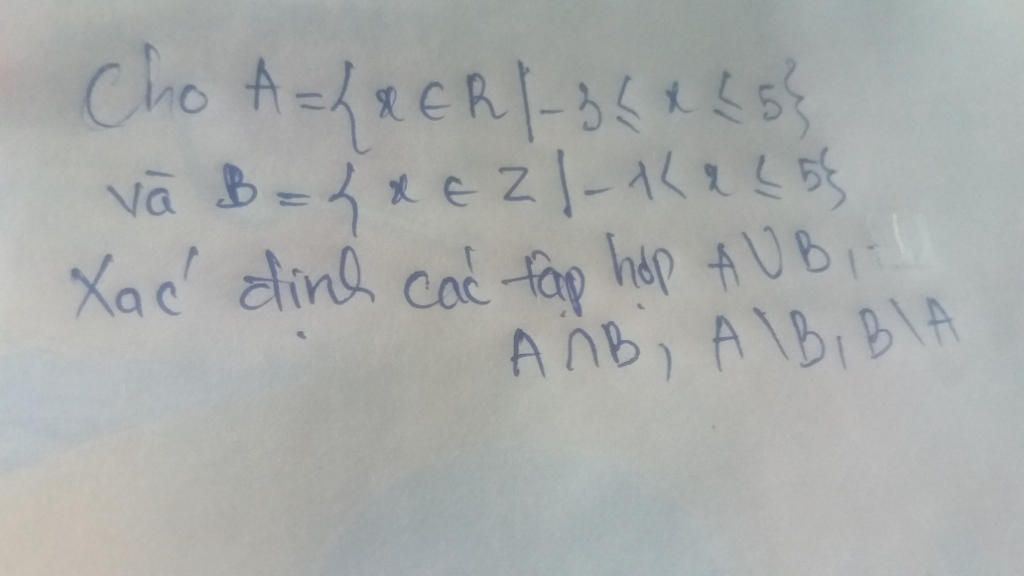 Cho A = {x ∈ R | -3 ≤ x ≤ 5}
và B = {x ∈ Z | -1 < x ≤ 5}
Xác định các tập hợp A ∪ B,
A ∩ B, A \ B, B \ A